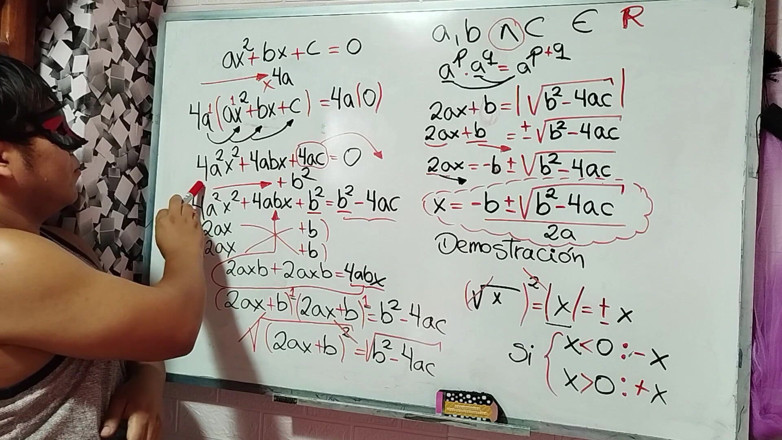 ax² + bx + c = 0
x 4a
4a¹(a¹x² + bx + c) = 4a(0)
4a²x² + 4abx + 4ac = 0
+ b²
4a²x² + 4abx + b² = b² - 4ac
2ax + b)
2ax + b)
2axb + 2axb = 4abx
(2ax + b)¹(2ax + b)¹ = b² - 4ac
√(2ax + b)² = √b² - 4ac
a, b ∧ C ∈ R
a^p · a^q = a^p+q
2ax + b = |√b² - 4ac|
2ax + b = ±√b² - 4ac
2ax = -b ± √b² - 4ac
x = -b ± √b² - 4ac
2a
Demostración
(√x)² = |x| = ± x
Si { x < 0 : - x
x > 0 : + x